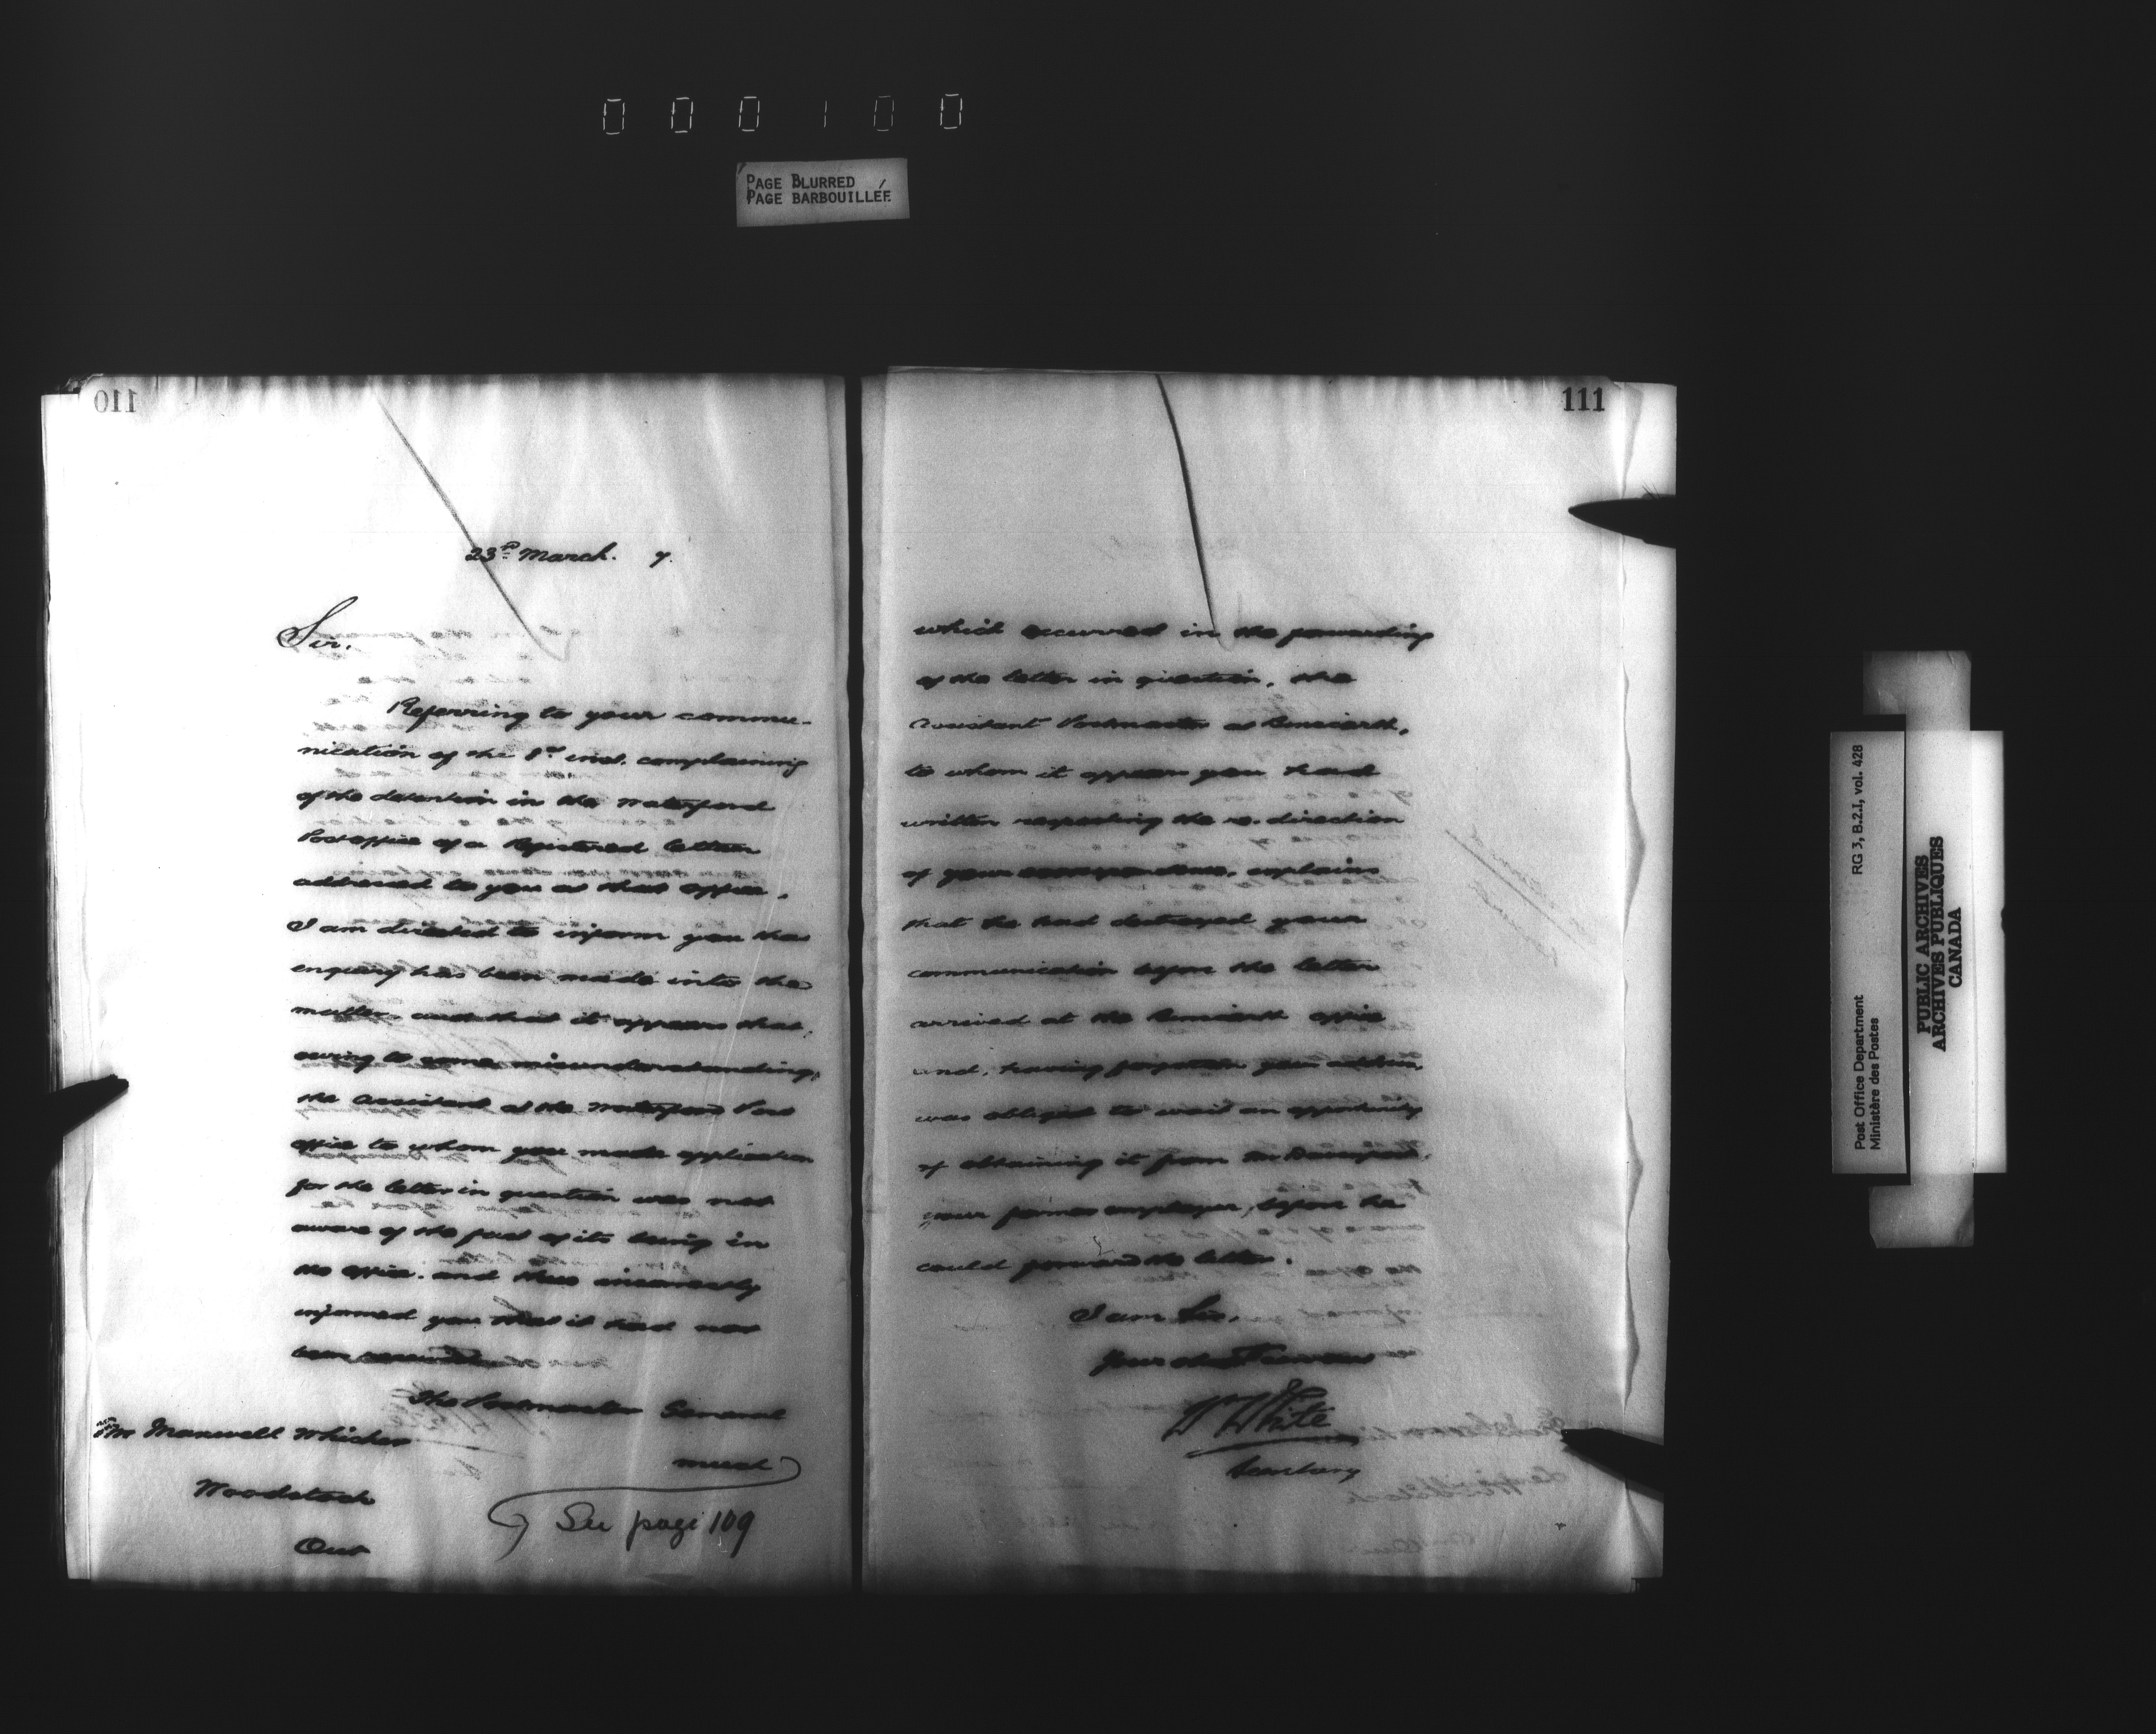 000100
PAGE BLURRED
PAGE BARBOUILLÉE
110
23rd March. 7.
Sir.
Referring to your commu-
nication of the 8th inst. complaining
of the detention in the Waterford
Post office of a Registered letter
addressed to you at that office,
I am directed to inform you that
enquiry has been made into the
matter and that it appears that,
owing to some misunderstanding,
the Assistant at the Waterford Post
office to whom you made application
for the letter in question was not
aware of the fact of its being in
the office. and thus incorrectly
informed you that it had not
been
The Postmaster General
much
Mr Maxwell Whicher
Woodstock
Ont
See page 109
111
which occurred in the forwarding
of the letter in question, the
Assistant Postmaster at
to whom it appears you had
written respecting the re-direction
of your correspondence, explains
that he had destroyed your
communication before the letter
arrived at the office
and, having forgotten your address,
was obliged to wait an opportunity
of obtaining it from
your former employer, before he
could forward the letter.
I am Sir,
Your obedt Servant
Wm White
Secretary
Post Office Department RG 3, B.2.I, vol. 428
Ministère des Postes
PUBLIC ARCHIVES
ARCHIVES PUBLIQUES
CANADA